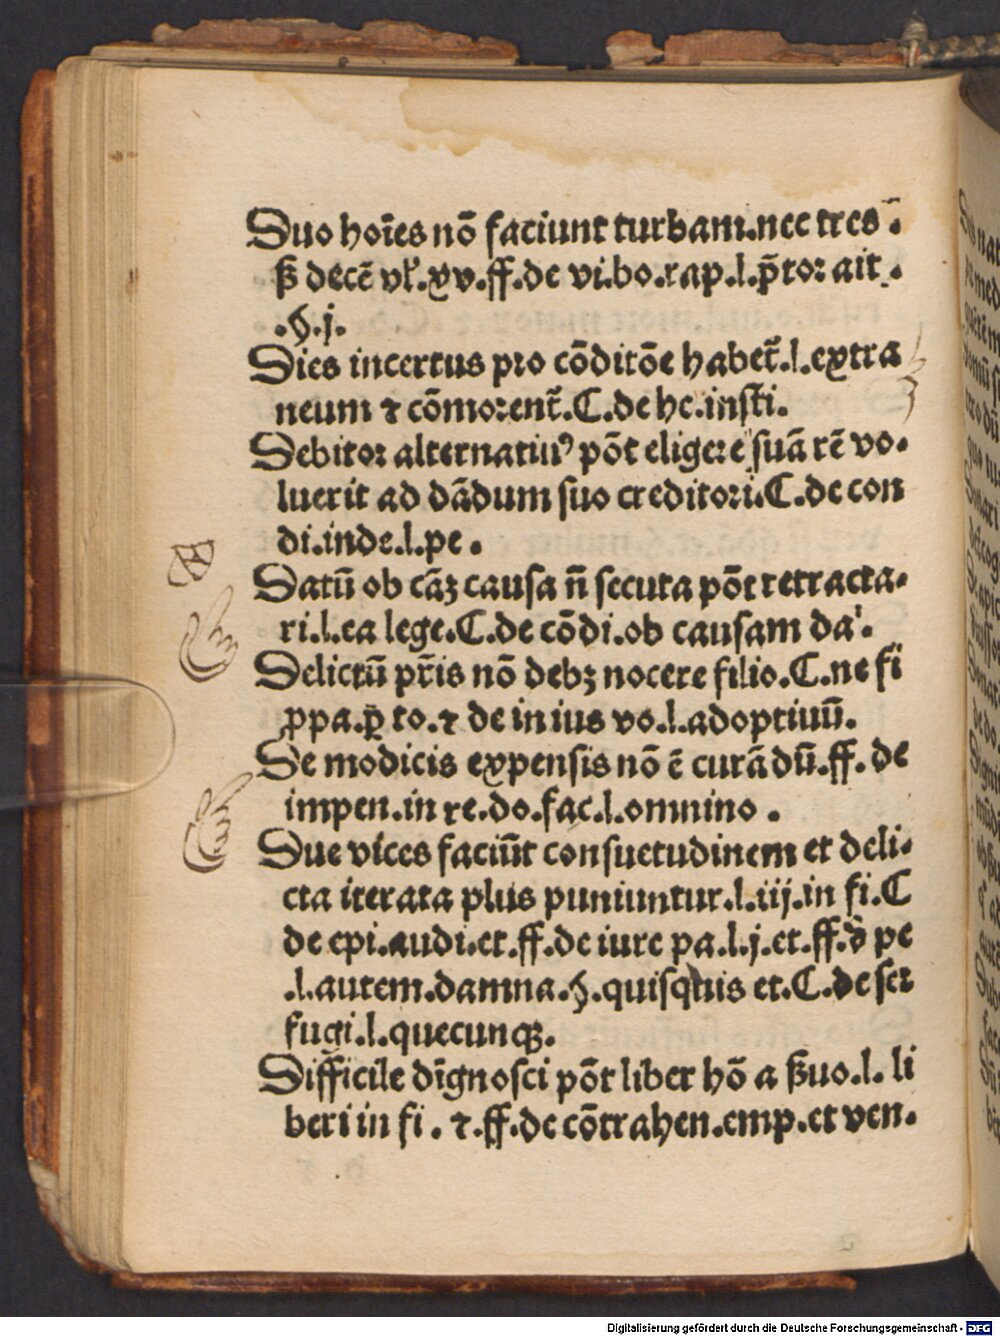 Duo hoīes nō faciunt turbam.nec tres .̄
ꝭß decē vł.xv.ff.de vi.bo.rap.l.p̄tor ait.
.§.j.
Dies incertus pro cōditōe habet̄.l.extra
neum ⁊ cōmorent̄.C.de he.insti.
Debitor alternatiuꝰ pōt eligere suā rē vo-
luerit ad dādum suo creditori.C.de con
di.inde.l.pe.
Datū ob cāꝫ causa n̄ secuta pōt retracta-
ri.l.ea lege.C.de cōdi.ob causam da'.
Delictū pr̄is nō debꝫ nocere filio.C.ne fi
ꝓpa.p̄ to.⁊ de in ius vo.l.adoptiuū.
De modicis expensis nō ē curādū.ff.de
impen.in re.do.fac.l.omnino.
Due vices faciūt consuetudinem et deli-
cta iterata plus puniuntur.l.iij.in fi.C
de epi.audi.et.ff.de iure pa.l.j.et.ff.d̄ pe
.l.autem.damna.§.quisquis et.C.de ser
fugi.l.quecunqꝫ.
Difficile dīgnosci pōt liber hō a ßuo.l.li
beri in fi.⁊.ff.de cōtrahen.emp.et ven.
Digitalisierung gefördert durch die Deutsche Forschungsgemeinschaft - DFG